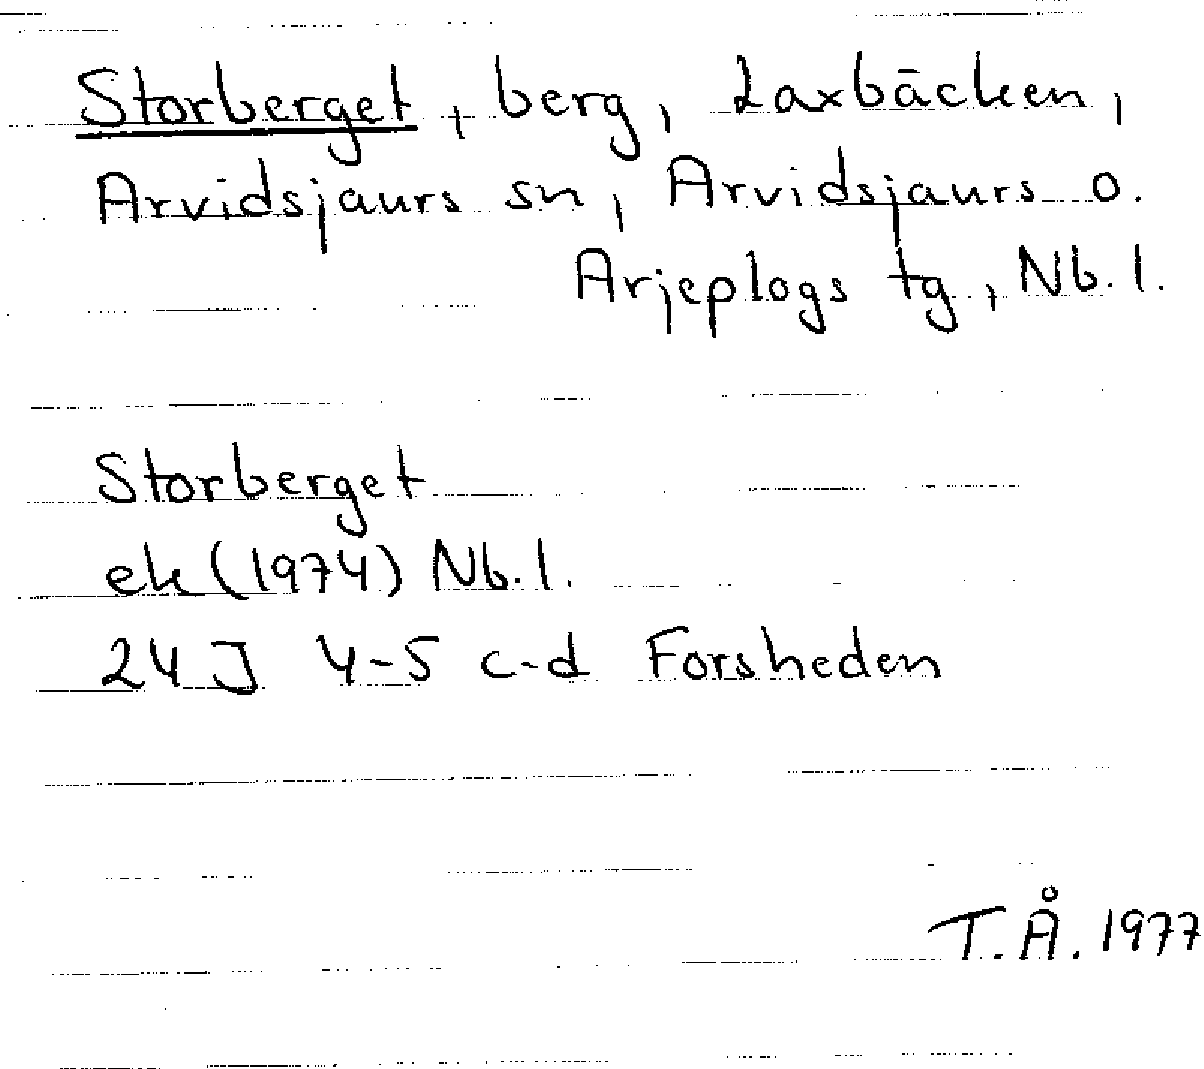 Storberget, berg, Laxbäcken,
Arvidsjaurs sn, Arvidsjaurs o.
Arjeplogs tg, Nb. l.
Storberget
ek (1974) Nb. l.
24 J 4-5 c-d Forsheden
T.Å. 1977